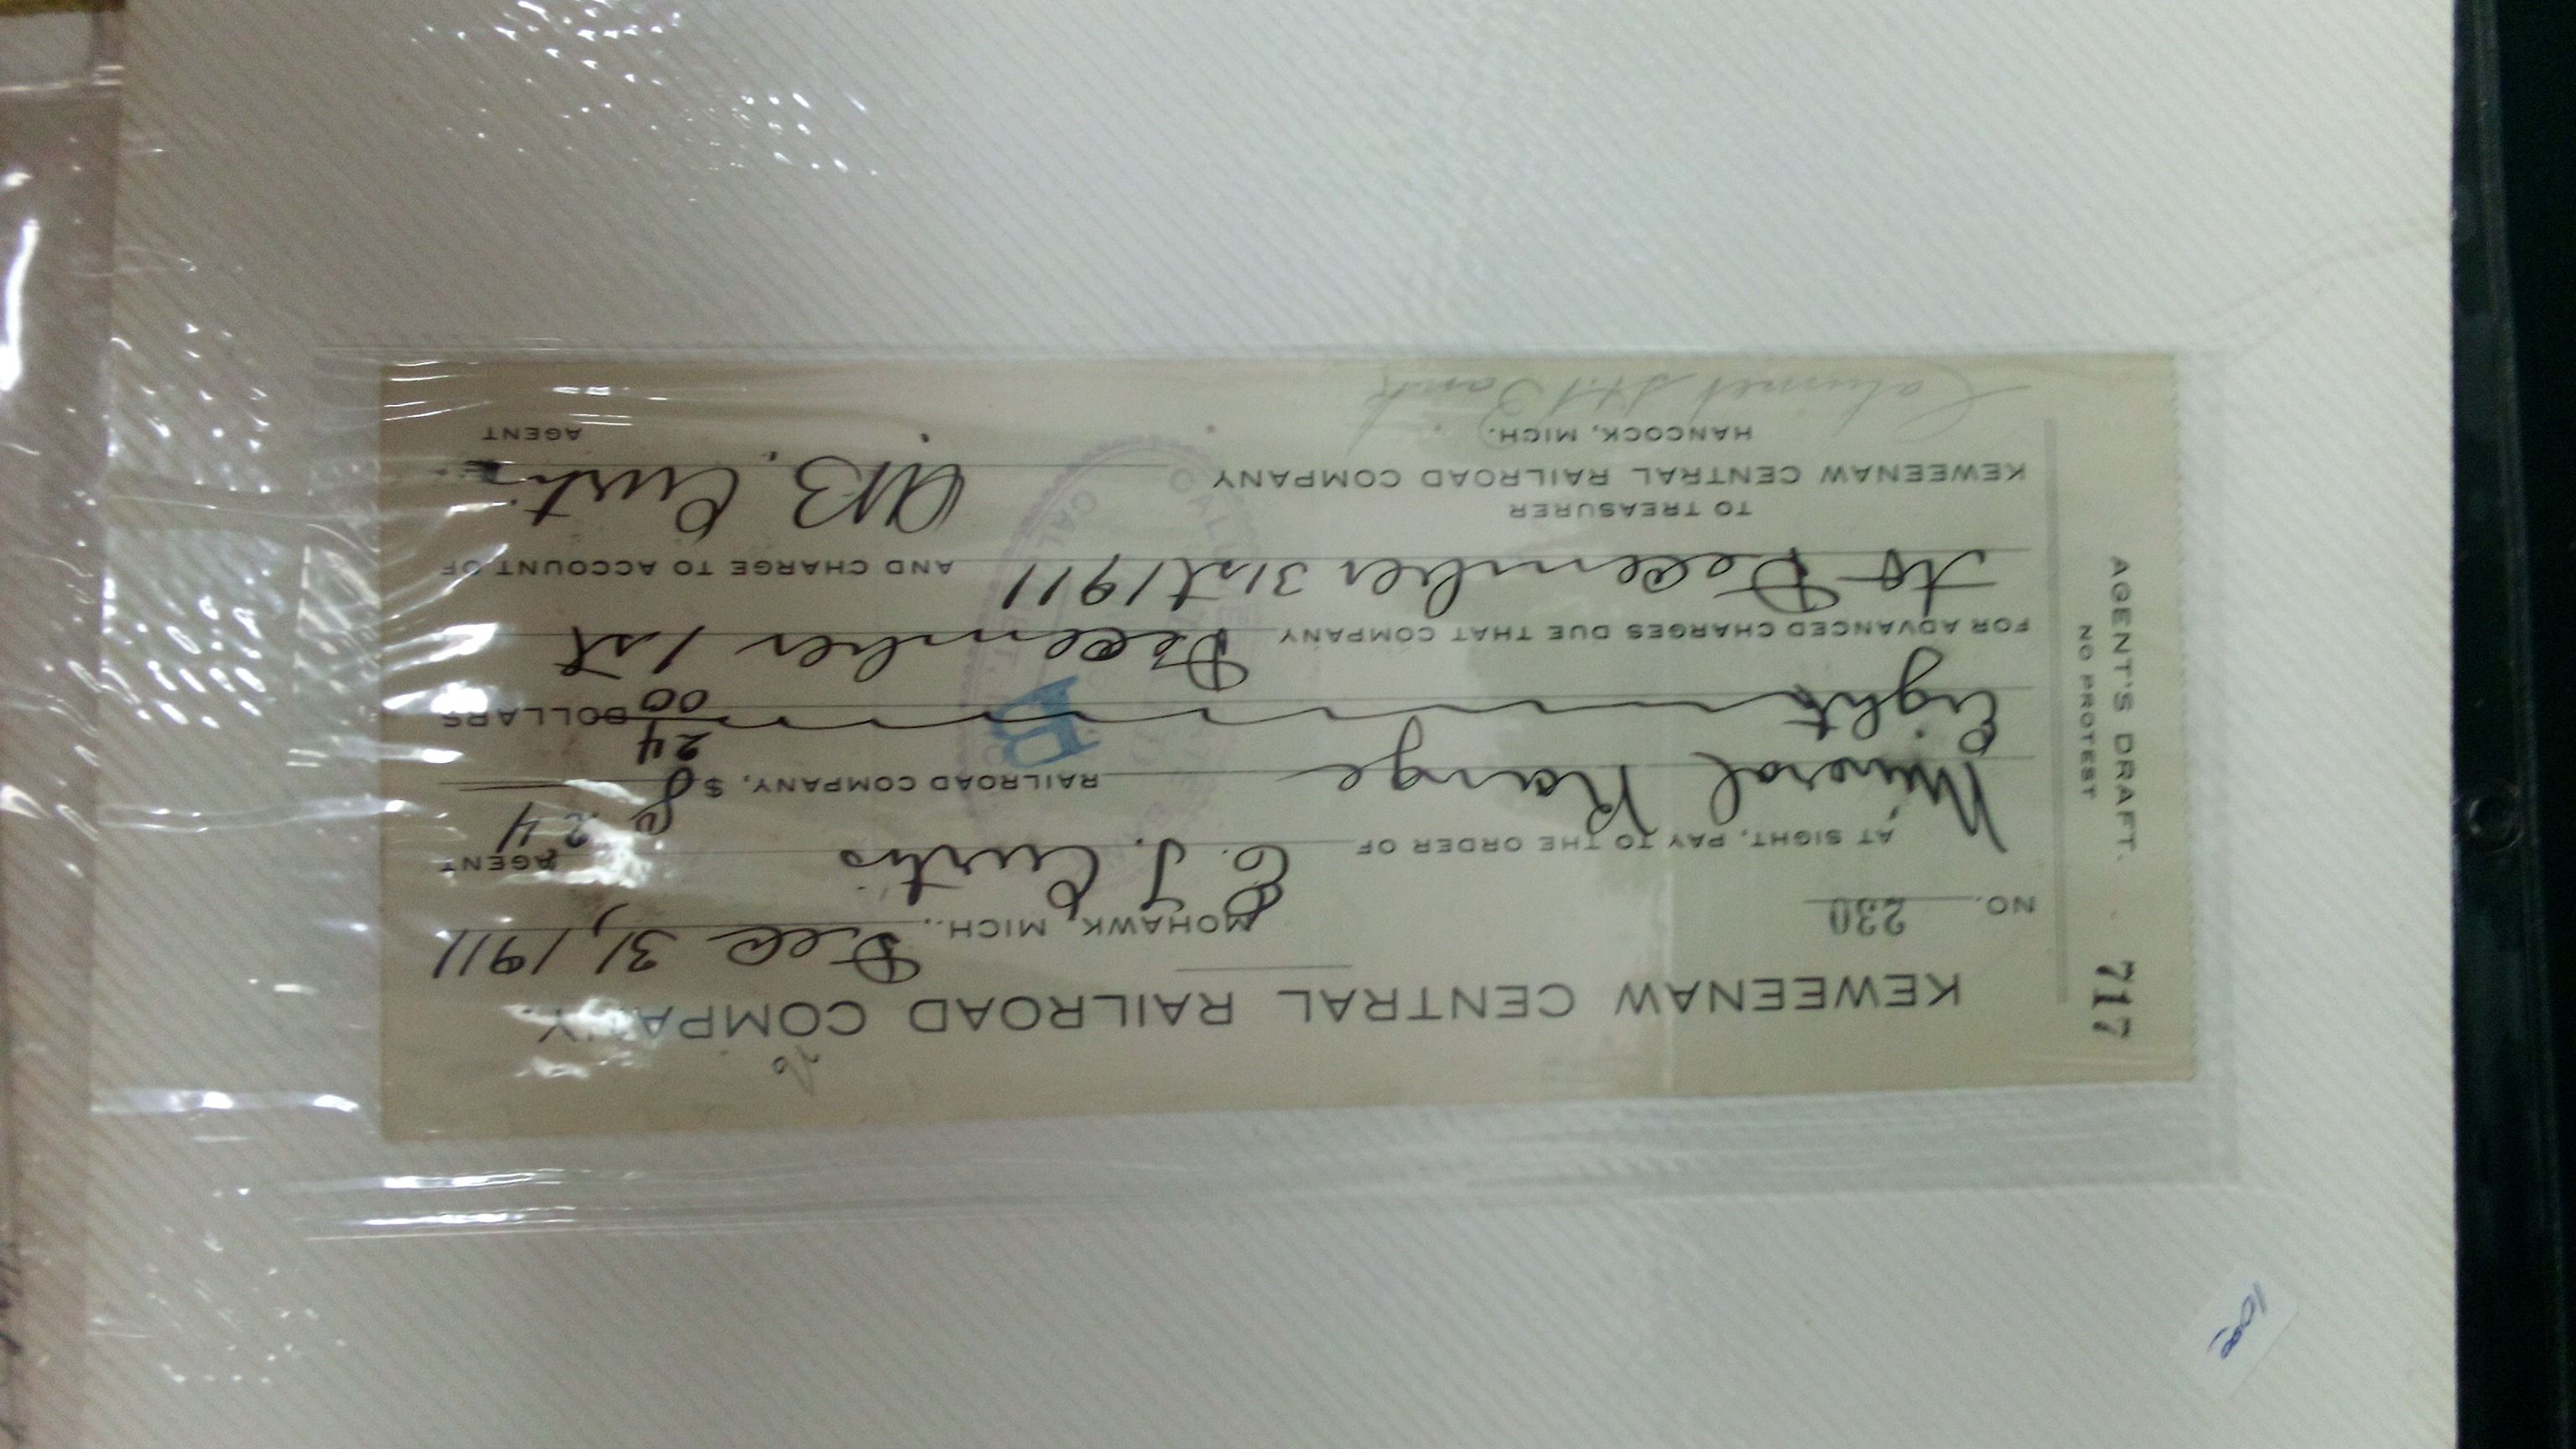 KEWEENAW CENTRAL RAILROAD COMPANY.
717
AGENT'S DRAFT.
NO PROTEST
NO. 230
MOHAWK, MICH., Dec 31, 1911
AT SIGHT, PAY TO THE ORDER OF E. J. Curtis AGENT
Mineral Range RAILROAD COMPANY, $8 24
8 24
Eight 24/00 DOLLARS
FOR ADVANCED CHARGES DUE THAT COMPANY December 1st
to December 31st 1911 AND CHARGE TO ACCOUNT OF
TO TREASURER
KEWEENAW CENTRAL RAILROAD COMPANY
HANCOCK, MICH.
B. Curtis
AGENT
Calumet State Bank
B